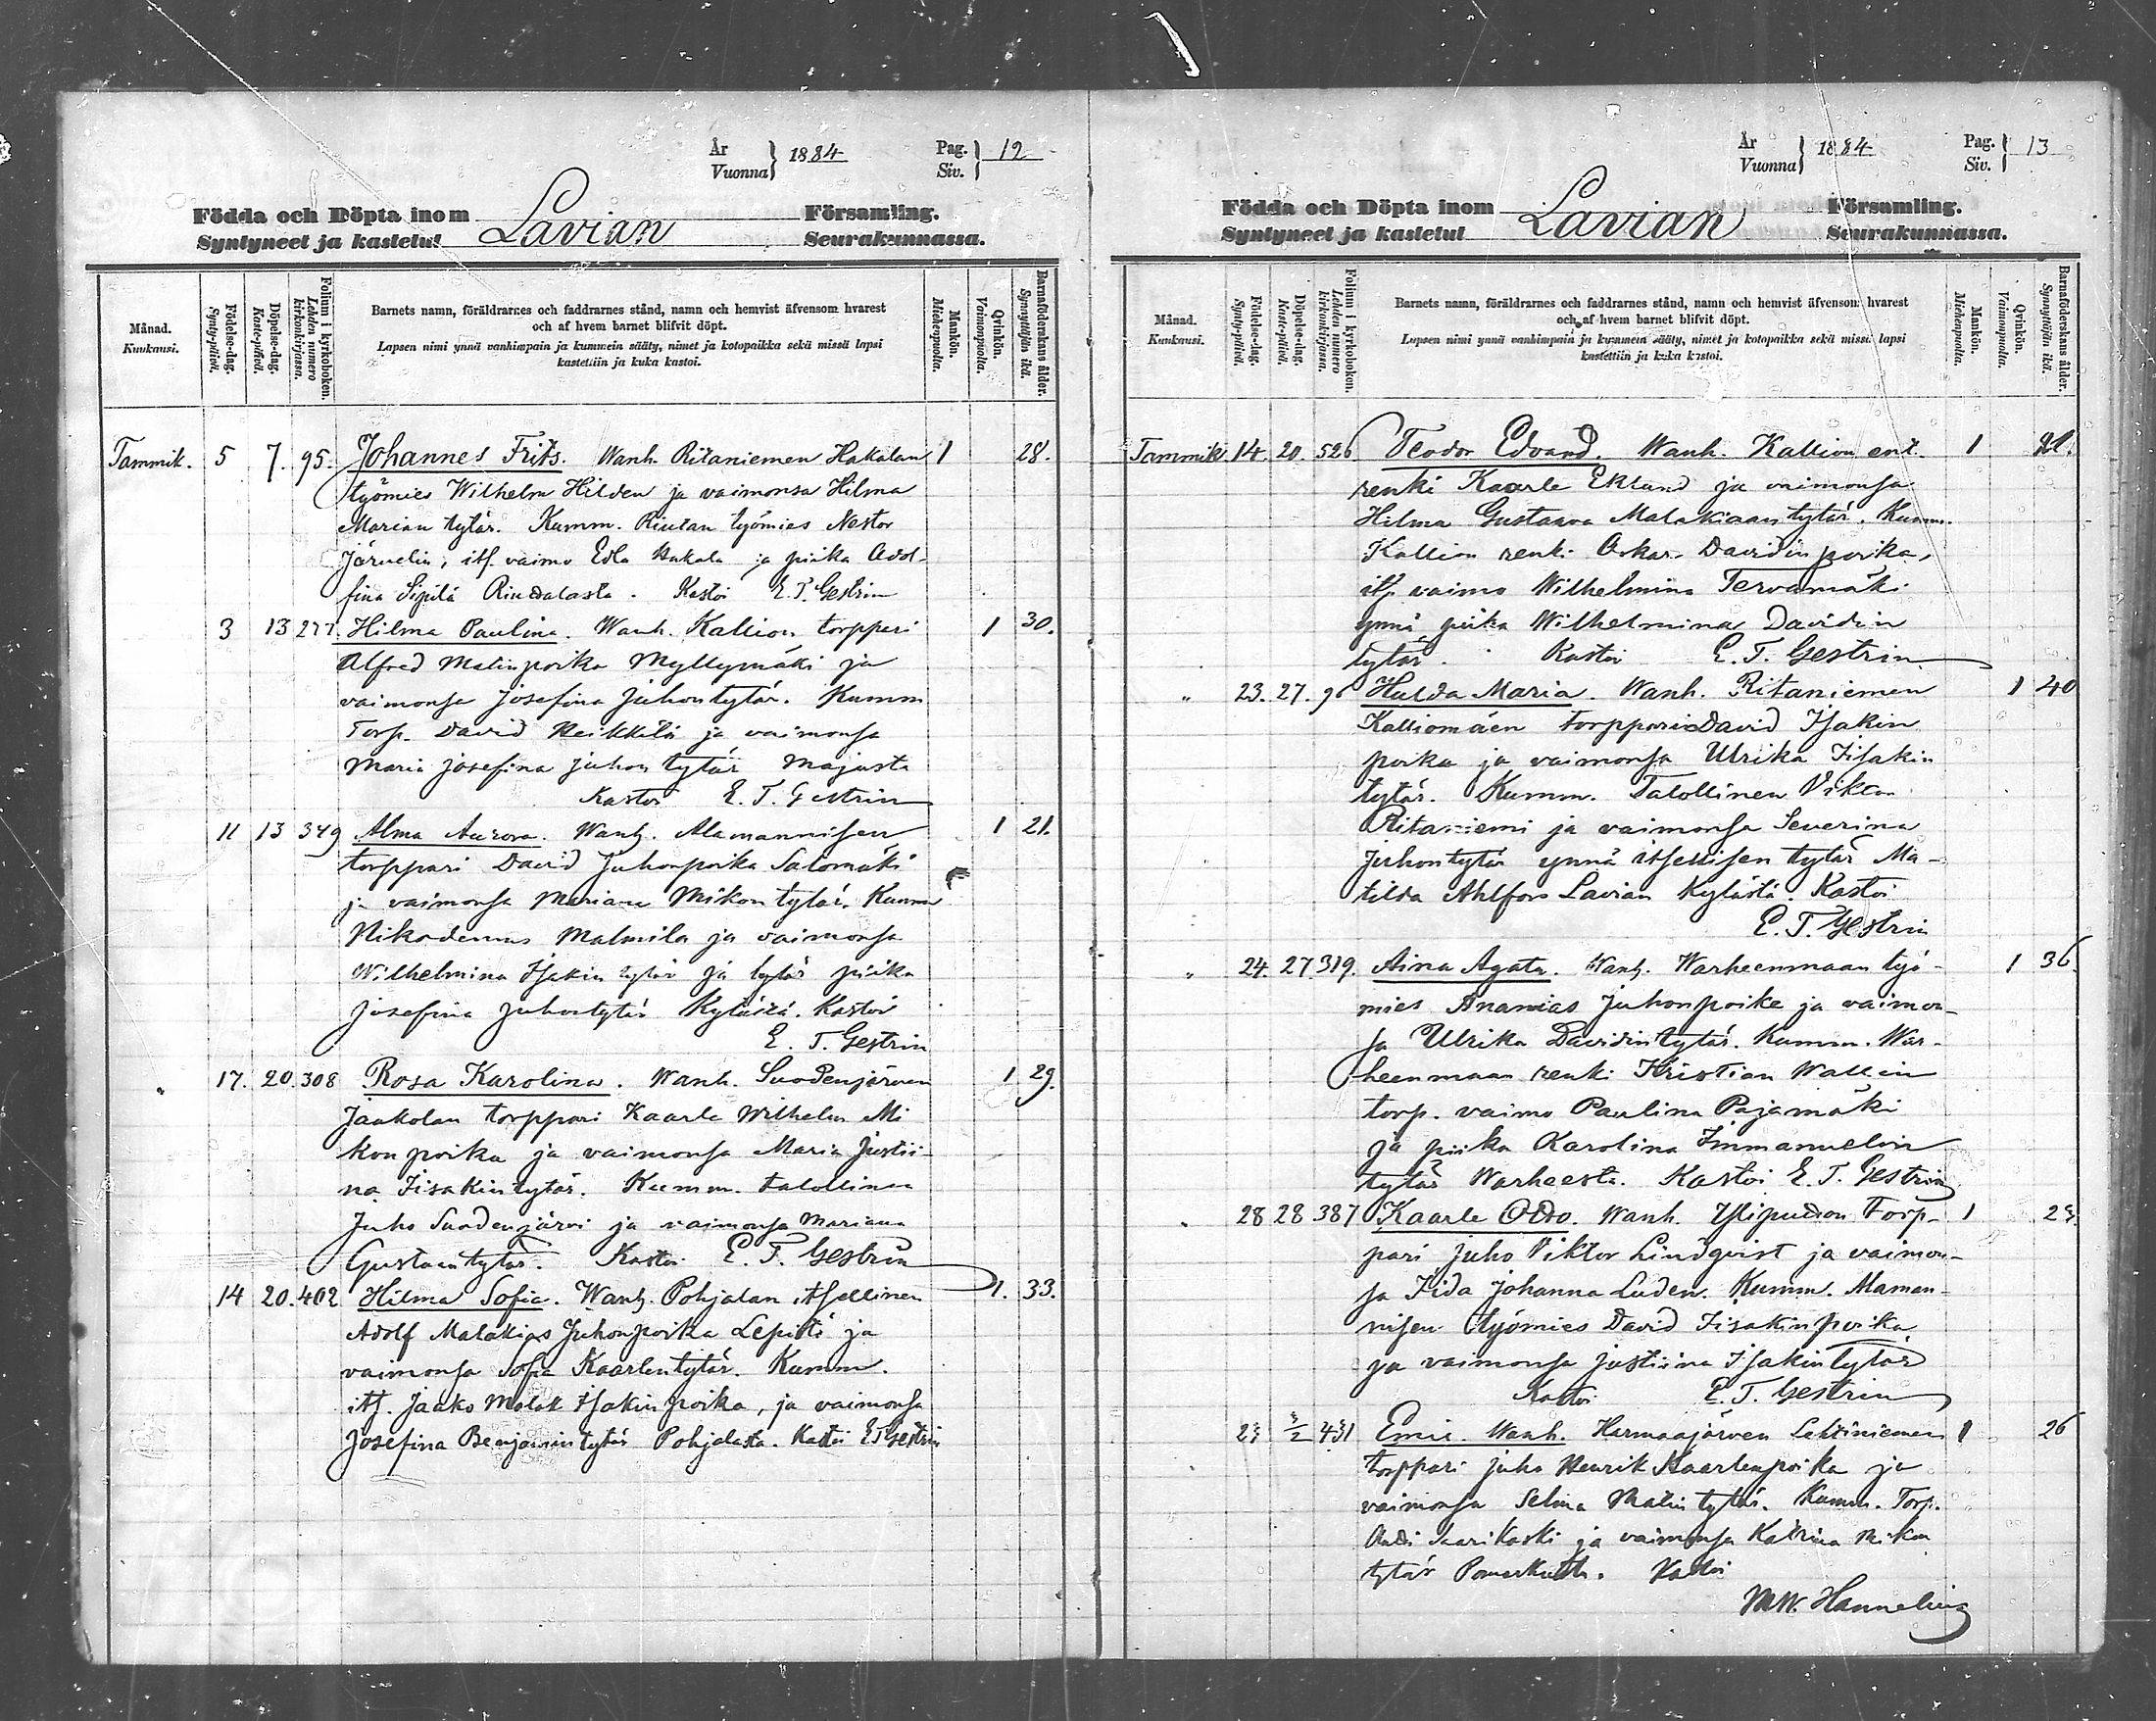 År
Vuonna } 1884
Pag.
Siv. } 12
Födda och Döpta inom Lavian Församling.
Syntyneet ja kastetut Seurakunnassa.
Månad.
Kuukausi.
Födelse-dag.
Synty-päivä.
Döpelse-dag.
Kaste-päivä.
Folium i kyrkoboken.
Lehden numero
kirkonkirjassa.
Barnets namn, föräldrarnes och faddrarnes stånd, namn och hemvist äfvensom hvarest
och af hvem barnet blifvit döpt.
Lapsen nimi ynnä vanhimpain ja kummein sääty, nimet ja kotopaikka sekä missä lapsi
kastettiin ja kuka kastoi.
Mankön.
Miehenpuolta.
Qvinkön.
Vaimonpuolta.
Barnaföderskans ålder.
Synnyttäjän ikä.
Tammik. 5 7. 95. Johannes Frits. Wanh. Ritaniemen Hakalan 1 28.
työmies Wilhelm Hilden ja vaimonsa Hilma
Marian tytär. Kumm. työmies Nestor
Järvelin, its. vaimo Edla Hakala ja piika Adol-
fina Sipilä Riudalasta. Kastoi E. T. Gestrin
3 13 277. Hilma Paulina. Wanh. Kallion torppari 1 30.
Alfred Matinpoika Myllymäki ja
vaimonsa Josefina Juhontytär. Kumm
Torp. David Heikkilä ja vaimonsa
Maria Josefina Juhon tytär Majasta
Kastoi E. T. Gestrin
11 13 349 Alma Aurora. Wanh. Alamannisen 1 21.
torppari David Juhonpoika Salomäki
ja vaimonsa Mariana Mikon tytär. Kumm
Nikodemus Malmila ja vaimonsa
Wilhelmina Isakin tytär ja tytär piika
Josefina Juhontytär Kylästä. Kastoi
E. T. Gestrin
" 17. 20. 308 Rosa Karolina. Wanh. Suodenjärven 1 29.
Jaakolan torppari Kaarle Wilhelm Mi
kon poika ja vaimonsa Maria Justii-
na Iisakintytär. Kumm. talollinen
Juho Suodenjärvi ja vaimonsa Mariana
Gustavintytär. Kastoi E. T. Gestrin
14 20. 402 Hilma Sofia. Wanh. Pohjalan itsellinen 1. 33.
Adolf Malakias Juhonpoika Lepistö ja
vaimonsa Sofia Kaarlentytär. Kumm.
its. Jaako Malak Isakin poika, ja vaimonsa
Josefina Benjamintytär Pohjalasta. Kastoi E T Gestrin
År
Vuonna } 1884
Pag.
Siv. } 13
Födda och Döpta inom Lavian Församling.
Syntyneet ja kastetut Seurakunnassa.
Månad.
Kuukausi.
Födelse-dag.
Synty-päivä.
Döpelse-dag.
Kaste-päivä.
Folium i kyrkoboken.
Lehden numero
kirkonkirjassa.
Barnets namn, föräldrarnes och faddrarnes stånd, namn och hemvist äfvensom hvarest
och af hvem barnet blifvit döpt.
Lapsen nimi ynnä vanhimpain ja kummein sääty, nimet ja kotopaikka sekä missä lapsi
kastettiin ja kuka kastoi.
Mankön.
Miehenpuolta.
Qvinkön.
Vaimonpuolta.
Barnaföderskans ålder.
Synnyttäjän ikä.
Tammik 14. 20. 526 Teodor Edvard. Wanh. Kallion ent. 1
renki Kaarle Eklund ja vaimonsa
Hilma Gustaava Malakiaan tytär. Kumm.
Kallion renki Oskar Davidin poika,
its vaimo Wilhelmina Tervamäki
ynnä piika Wilhelmina Davidin
tytär. Kastoi E. T. Gestrin
" 23. 27. 96 Hulda Maria. Wanh. Ritaniemen 1 40
Kalliomäen torppari David Isakin
poika ja vaimonsa Ulrika Iisakin
tytär. Kumm. Talollinen Viktor
Ritaniemi ja vaimonsa Severina
Juhontytär ynnä itsellisen tytär Ma-
tilda Ahlfors Lavian Kylästä. Kastoi
E. T. Gestrin
" 24. 27 319. Aina Agata. Wanh. Warheenmaan työ- 1 36.
mies Ananias Juhonpoika ja vaimon-
sa Ulrika Davidintytär. Kumm. War-
heenmaan renki Kristian Wallin
torp. vaimo Paulina Pajamäki
ja piika Karolina Immanuelin
tytär Warheesta. Kastoi E. T. Gestrin
" 28 28 387 Kaarle Otto. Wanh. Torp- 1
pari Juho Viktor Lindqvist ja vaimon-
sa Iida Johanna Luden. Kumm. Maman-
nisen työmies David Iisakin poika
ja vaimonsa Justiina Isakintytär
Kastoi E. T. Gestrin
3/2 431 Emil. Wanh. Harmaajärven Lehtiniemen 1 26
torppari Juho Henrik Kaarlenpoika ja
vaimonsa Selma Matin tytär. Kumm. Torp.
Antti Saarikoski ja vaimonsa Katrina Mikon
tytär. Kastoi
M.W. Hannelius